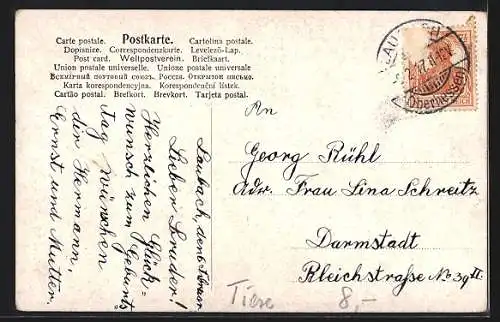 Carte postale. Postkarte. Cartolina postale.
Dopisnice. Correspondenzkarte. Levelező-Lap.
Post card. Weltpostverein. Briefkaart.
Union postale universelle. Unione postale universale
Всемірный почтовый союзъ. Россія. Открытое письмо.
Karta korespondencyjna. Korespondenční lístek.
Cartão postal. Brefkort. Brevkort. Tarjeta postal.
Laubach, den
Lieber Bruder!
Herzlichen Glück-
wunsch zum Geburts
tag wünschen
dir Hermann,
Ernst und Mutter.
An
Georg Rühl
Adr. Frau Lina Schreitz
Darmstadt
Bleichstraße No 39
(Oberhessen)
Tiere 8,-